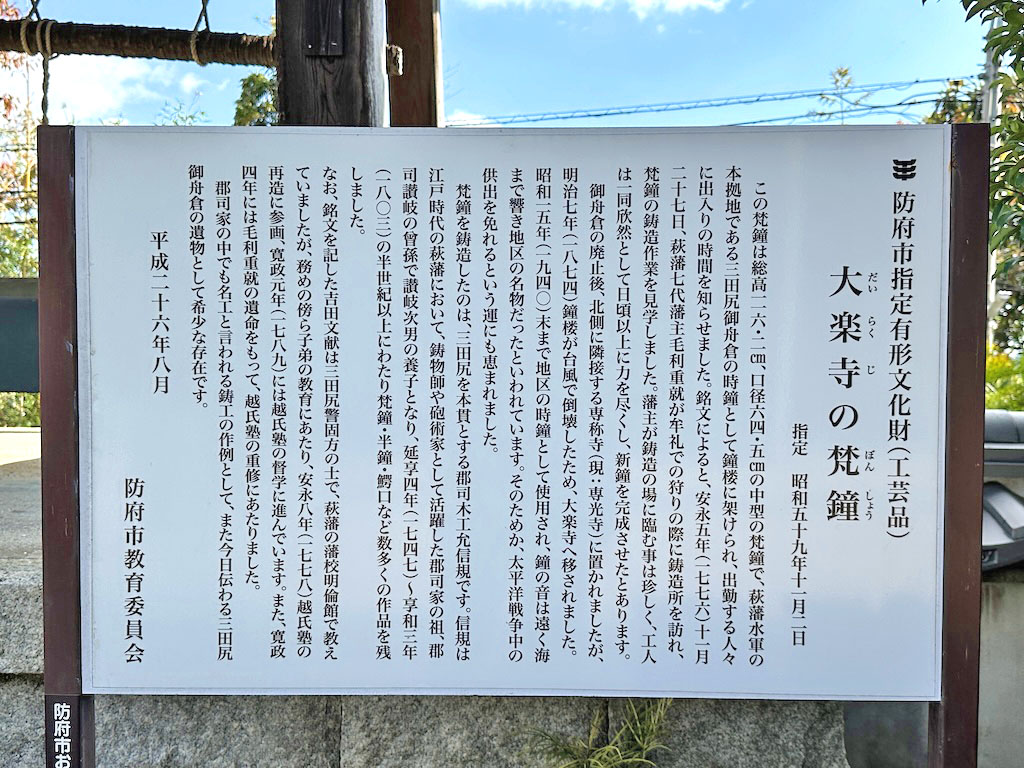 防府市指定有形文化財(工芸品)
大楽寺の梵鐘
だいらくじぼんしょう
指定 昭和五十九年十一月二日
この梵鐘は総高一二六・二㎝、口径六四・五㎝の中型の梵鐘で、萩藩水軍の
本拠地である三田尻御舟倉の時鐘として鐘楼に架けられ、出勤する人々
に出入りの時間を知らせました。銘文によると、安永五年(一七七六)十一月
二十七日、萩藩七代藩主毛利重就が牟礼での狩りの際に鋳造所を訪れ、
梵鐘の鋳造作業を見学しました。藩主が鋳造の場に臨む事は珍しく、工人
は一同欣然として日頃以上に力を尽くし、新鐘を完成させたとあります。
御舟倉の廃止後、北側に隣接する専称寺(現:専光寺)に置かれましたが、
明治七年(一八七四)鐘楼が台風で倒壊したため、大楽寺へ移されました。
昭和一五年(一九四〇)末まで地区の時鐘として使用され、鐘の音は遠く海
まで響き地区の名物だったといわれています。そのためか、太平洋戦争中の
供出を免れるという運にも恵まれました。
梵鐘を鋳造したのは、三田尻を本貫とする郡司木工允信規です。信規は
江戸時代の萩藩において、鋳物師や砲術家として活躍した郡司家の祖、郡
司讃岐の曾孫で讃岐次男の養子となり、延享四年(一七四七)～享和三年
(一八〇三)の半世紀以上にわたり梵鐘・半鐘・鰐口など数多くの作品を残
しました。
なお、銘文を記した吉田文献は三田尻警固方の士で、萩藩の藩校明倫館で教え
ていましたが、務めの傍ら子弟の教育にあたり、安永八年(一七七八)越氏塾の
再造に参画、寛政元年(一七八九)には越氏塾の督学に進んでいます。また、寛政
四年には毛利重就の遺命をもって、越氏塾の重修にあたりました。
郡司家の中でも名工と言われる鋳工の作例として、また今日伝わる三田尻
御舟倉の遺物として希少な存在です。
平成二十六年八月
防府市教育委員会
防府市お